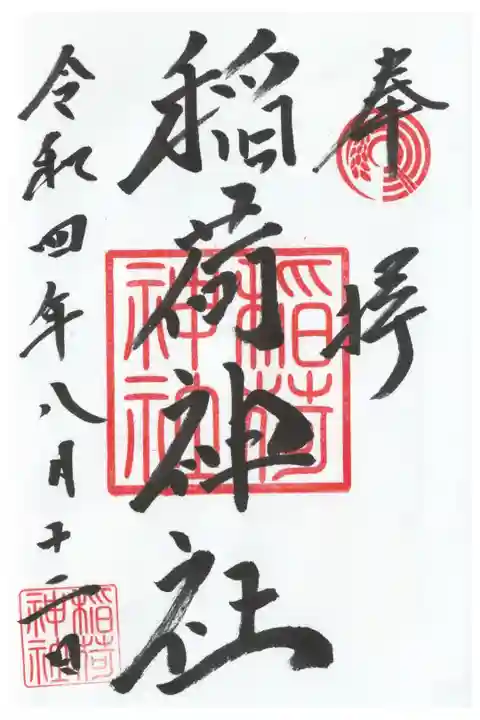 奉拝
稲荷神社
稲荷神社
令和四年八月十二日
稲荷神社